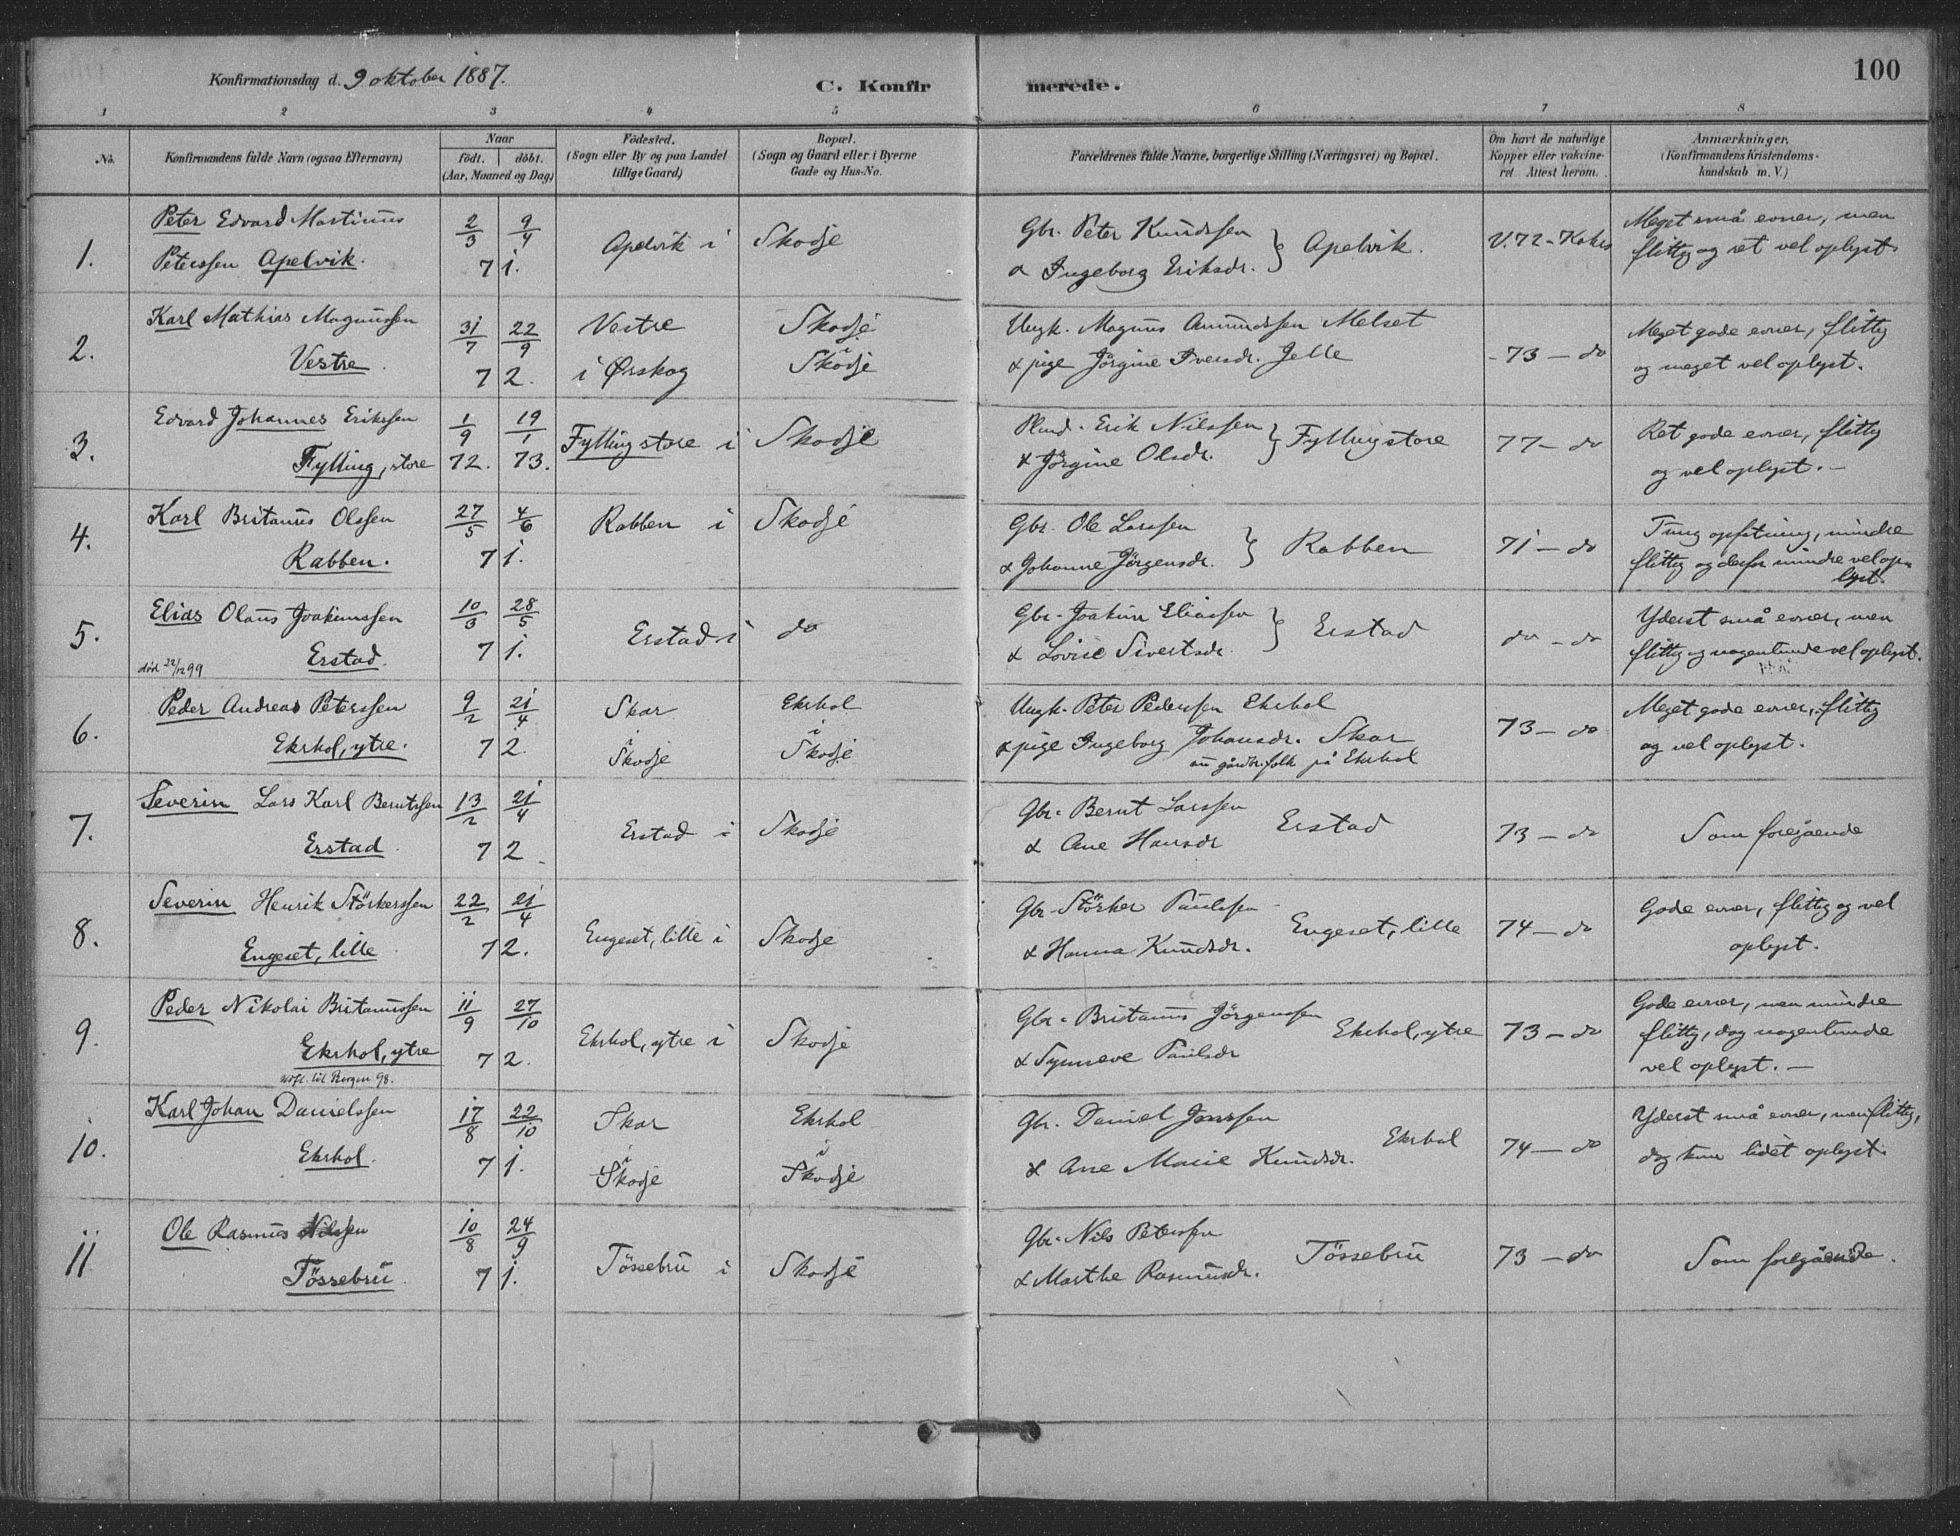 100
Konfirmationsdag d. 9 oktober 1887.
C. Konfirmerede.
1 2 3 4 5 6 7 8
No.
Konfirmandens fulde Navn (ogsaa Efternavn)
Naar
födt. döbt.
(Aar, Maaned og Dag)
Födested.
(Sogn eller By og paa Landet
tillige Gaard)
Bopæl.
(Sogn og Gaard eller i Byerne
Gade og Hus-No.
Forældrenes fulde Navne, borgerlige Stilling (Næringsvei) og Bopæl.
Om havt de naturlige
Kopper eller vakcine-
ret Attest herom.
Anmærkninger.
(Konfirmandens Kristendoms-
kundskab m. V.)
1. Peter Edvard Martinus 2/3 9/4 Apelvik i Skodje Gbr. Peter Knudssen } Apelvik. V. 72 - Kokes Meget små evner, men
Peterssen Apelvik. 7 1. & Ingeborg Eriksdr. flittig og ret vel oplyst.
2. Karl Mathias Magnussen 31/7 22/9 Vestre Skodje Ungk. Magnus Amundssen Melset - 73 - do Meget gode evner, flittig
Vestre. 7 2. i Ørskog i Skodje & pige Jørgine Iversdr. Jelle og meget vel oplyst.
3. Edvard Johannes Erikssen 1/9 19/1 Fylling store i Skodje Plmd. Erik Nilssen } Fylling store 77 - do Ret gode evner, flittig
Fylling, store 72. 73. & Jørgine Olsdr. og vel oplyst. -
4. Karl Britanus Olssen 27/5 4/6 Rabben i Skodje Gbr. Ole Larssen } Rabben 71 - do Tung opfatning, mindre
Rabben. 7 1. & Johanne Jørgensdr. flittig og derfor mindre vel op-
lyst.
5. Elias Olaus Joakimssen 10/3 28/5 Erstad i do Gbr. Joakim Eliassen } Erstad do - do Yderst små evner, men
død 22/12 99 Erstad. 7 1. & Lovise Sivertsdr. flittig og nogenlunde vel oplyst.
6. Peder Andreas Peterssen 9/2 21/4 Skar Ekrhol Ungk. Peter Pederssen Ekrhol 73 - do Meget gode evner, flittig
Ekrhol, ytre. 7 2. i Skodje i Skodje & pige Ingeborg Johansdr. Skar og vel oplyst.
nu gårdbr.folk på Ekrhol
7. Severin Lars Karl Berntssen 13/2 21/4 Erstad i Skodje Gbr. Bernt Larssen Erstad 73 - do Som foregående
Erstad. 7 2. & Ane Hansdr
8. Severin Henrik Störkerssen 22/2 21/4 Engeset, lille i Skodje Gbr. Störker Paulssen Engeset, lille 74 - do Gode evner, flittig og vel
Engeset, lille 7 2. & Hanna Knudsdr. oplyst.
9. Peder Nikolai Britanussen 11/9 27/10 Ekrhol, ytre i Skodje Gbr. Britanus Jörgenssen Ekrhol, ytre 73 - do Gode evner, men mindre
Ekrhol, ytre 7 2. & Synneve Paulsdr flittig, dog nogenlunde
utfl. til Bergen 98. vel oplyst. -
10. Karl Johan Danielssen 17/8 22/10 Skar Ekrhol Gbr. Daniel Jonssen Ekrhol 74 - do Yderst små evner, men flittig,
Ekrhol. 7 1. i Skodje i Skodje & Ane Marie Knudsdr. dog kun lidet oplyst.
11. Ole Rasmus Nilssen 10/8 24/9 Tössebru i Skodje Gbr. Nils Peterssen Tössebru 73 - do Som foregående.
Tössebru. 7 1. & Marthe Rasmusdr.